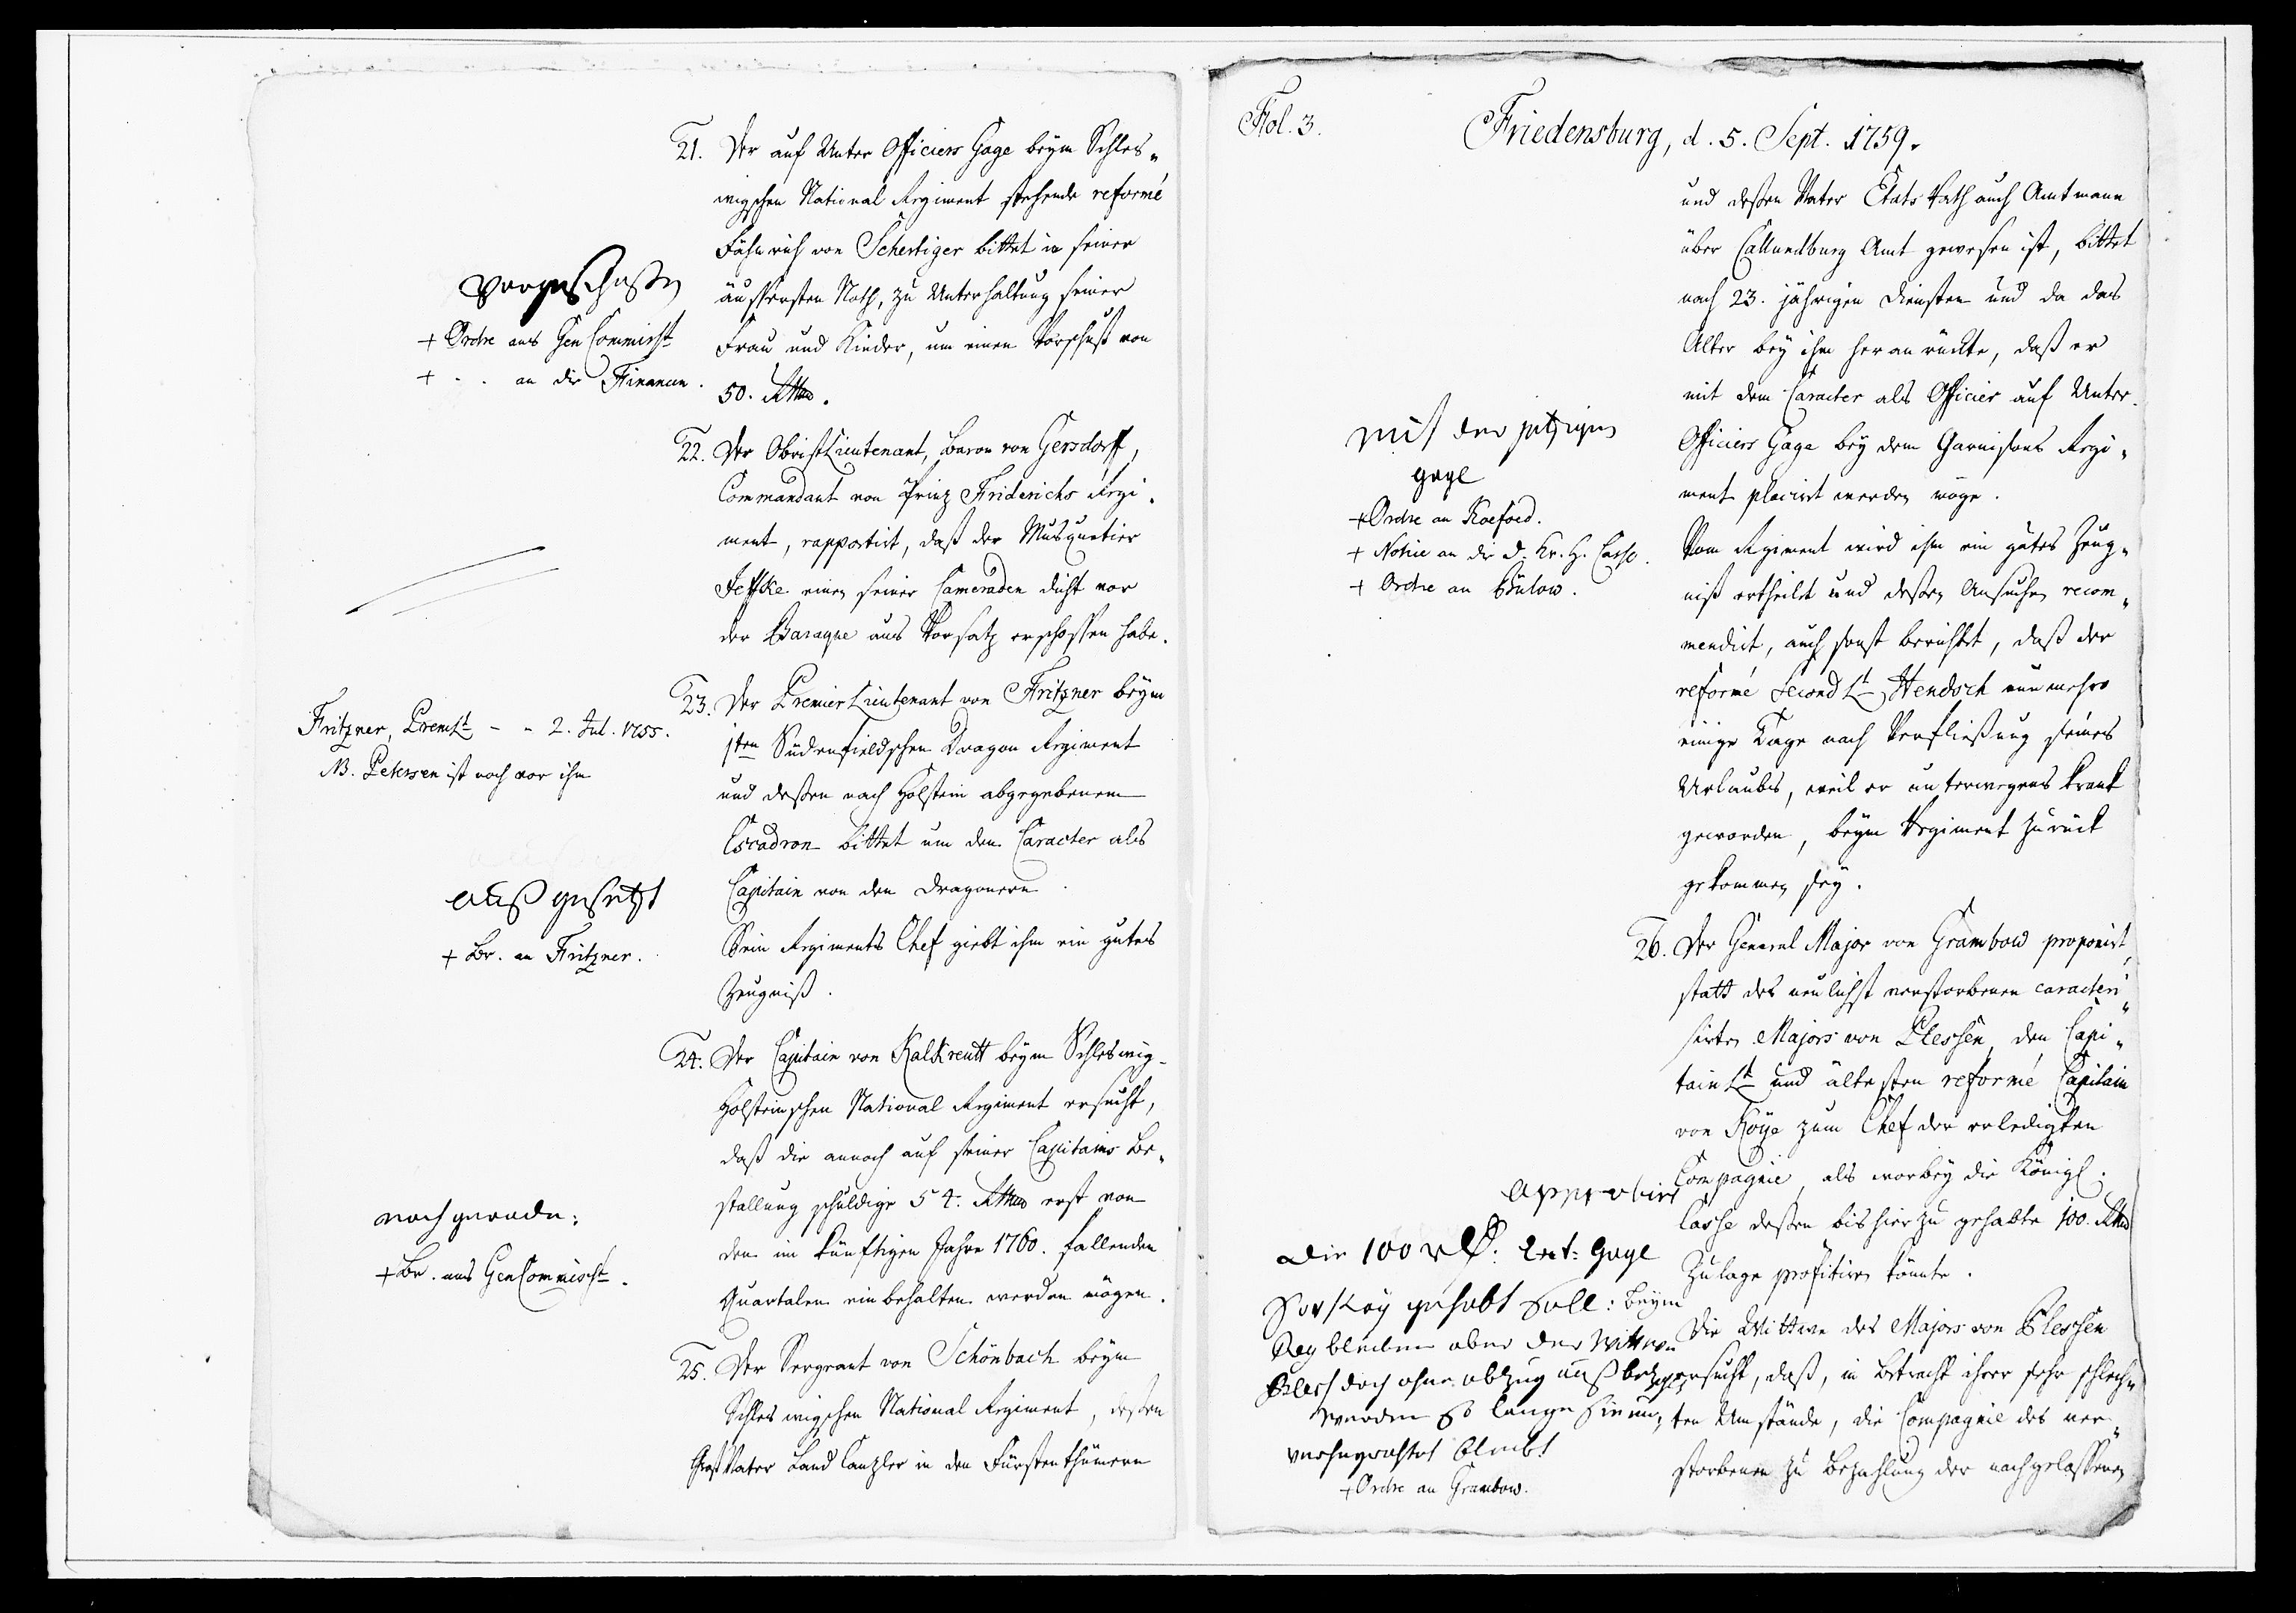 21. Der auf Unter Officiers Gage beym Schles„
wigschen National Regiment stehende reformé
Fähnrich von Schertiger bittet in seiner
äussersten Noth, zu Unterhaltung seiner
Frau und Kinder, um einen Vorschuß von
50. Rthlr.
Vorgeschoßen
+ Ordre ans Gen Commiss:t
+ - - an die Financen.
22. Der ObristLieutenant, Baron von Gersdorff,
Commandant von Prinz Friderichs Regi„
ment, rapportirt, daß der Musquetier
Jeffke einen seiner Cameraden dicht vor
der Baraque aus Vorsatz erschossen habe.
23. Der PremierLieutenant von Fritzner beym
1sten Südenfieldschen Dragon Regiment
und deßen nach Holstein abgegebenem
Escadron bittet um den Caracter als
Capitain von den Dragonern.
Sein Regiments Chef giebt ihm ein gutes
Zeugniß.
Fritzner, Prem Lt - - 2. Jul. 1755.
NB. Petersen ist noch vor ihm
auß gesetzt
+ Br. an Fritzner.
24. Der Capitain von Kalkreutt beym Schleswig-
Holsteinschen National Regiment ersucht,
daß die annoch auf seiner Capitains Be„
stallung schuldige 54. Rthlr erst von
den im künftigen Jahre 1760. fallenden
Quartalen einbehalten werden mögen.
nachgerade:
+ Br. ans GenCommiss:t.
25. Der Sergeant von Schönbach beym
Schleswigschen National Regiment, deßen
GroßVater Land Canzler in den Fürstenthümern
Fol. 3.
Friedensburg, d. 5. Sept. 1759.
und deßen Vater Etats Rath auch Amtmann
über Callundburg Amt gewesen ist, bittet
nach 23. jährigen Diensten und da das
Alter bey ihm heran rückte, daß er
mit dem Caracter als Officier auf Unter-
Officiers Gage bey dem Garnisons Regi„
ment placirt werden möge.
Vom Regiment wird ihm ein gutes Zeug„
niß ertheilt und deßen Ansuchen recom„
mendirt, auch sonst berichtet, daß der
reformé Second Lt Hendsch nunmehro
einige Tage nach Verfließung seines
Urlaubs, weil er unterwegens krank
geworden, beym Regiment zurück
gekommen sey.
mit der jetzigen
gage
+ Ordre an Koefoed.
+ Notice an die d. Kr. H. Casse.
+ Ordre an Bülow.
26. Der General Major von Grambow proponirt,
statt des neulichst verstorbenen caracteri„
sirten Majors von Plessen, den Capi„
tain Lt und ältesten reformé Capitain
von Köye zum Chef der erledigten
Compagnie, als worbey die Königl.
Casse deßen bishierzu gehabte 100. Rthlr
Zulage profitiren könnte.
Die Wittwe des Majors von Plessen
ersucht, daß, in Betracht ihrer sehr schlech„
ten Umstände, die Compagnie des ver„
storbenen zu Bezahlung der nachgelassenen
approbirt
die 100 rß: Gage
Köy gehabt soll: beym
Reg bleiben aber der Wittwe
Pless doch ohne abzug auß bezahlt
werden so lange sie un„
verheyrahtet bleibt
+ Ordre an Grambow.